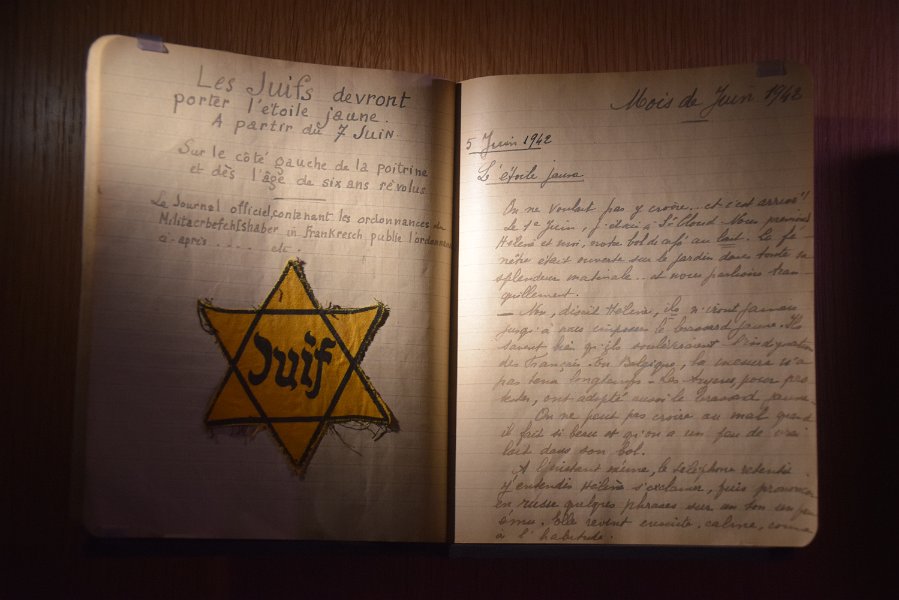 Les Juifs devront
porter l'étoile jaune.
A partir du 7 Juin.
Sur le côté gauche de la poitrine
et dès l'âge de six ans révolus
Le Journal officiel, contenant les ordonnances du
Militaerbefehlshaber in Frankreich, publie l'ordonnance
ci-après.... etc.
Juif
Mois de Juin 1942
5 Juin 1942
L'étoile jaune
On ne voulait pas y croire... et c'est arrivé!
Le 1er Juin, j'étais à St Cloud. Nous prenions
Hélène et moi, notre bol de café au lait. La fe-
nêtre était ouverte sur le jardin dans toute sa
splendeur matinale.. et nous parlions tran-
quillement.
— Non, disait Hélène, ils n'iront jamais
jusqu'à nous imposer le brassard jaune. Ils
savent bien qu'ils soulèveraient l'indignation
des Français. En Belgique, la mesure n'a
pas tenu longtemps. Les aryens, pour pro-
tester, ont adopté aussi le brassard jaune.
On ne peut pas croire au mal quand
il fait si beau et qu'on a un peu de vrai
lait dans son bol.
A l'instant même, le téléphone retentit.
J'entendis Hélène s'exclamer, puis prononcer
en russe quelques phrases sur un ton un peu
ému. Elle revint ensuite, calme, comme
à l'habitude.